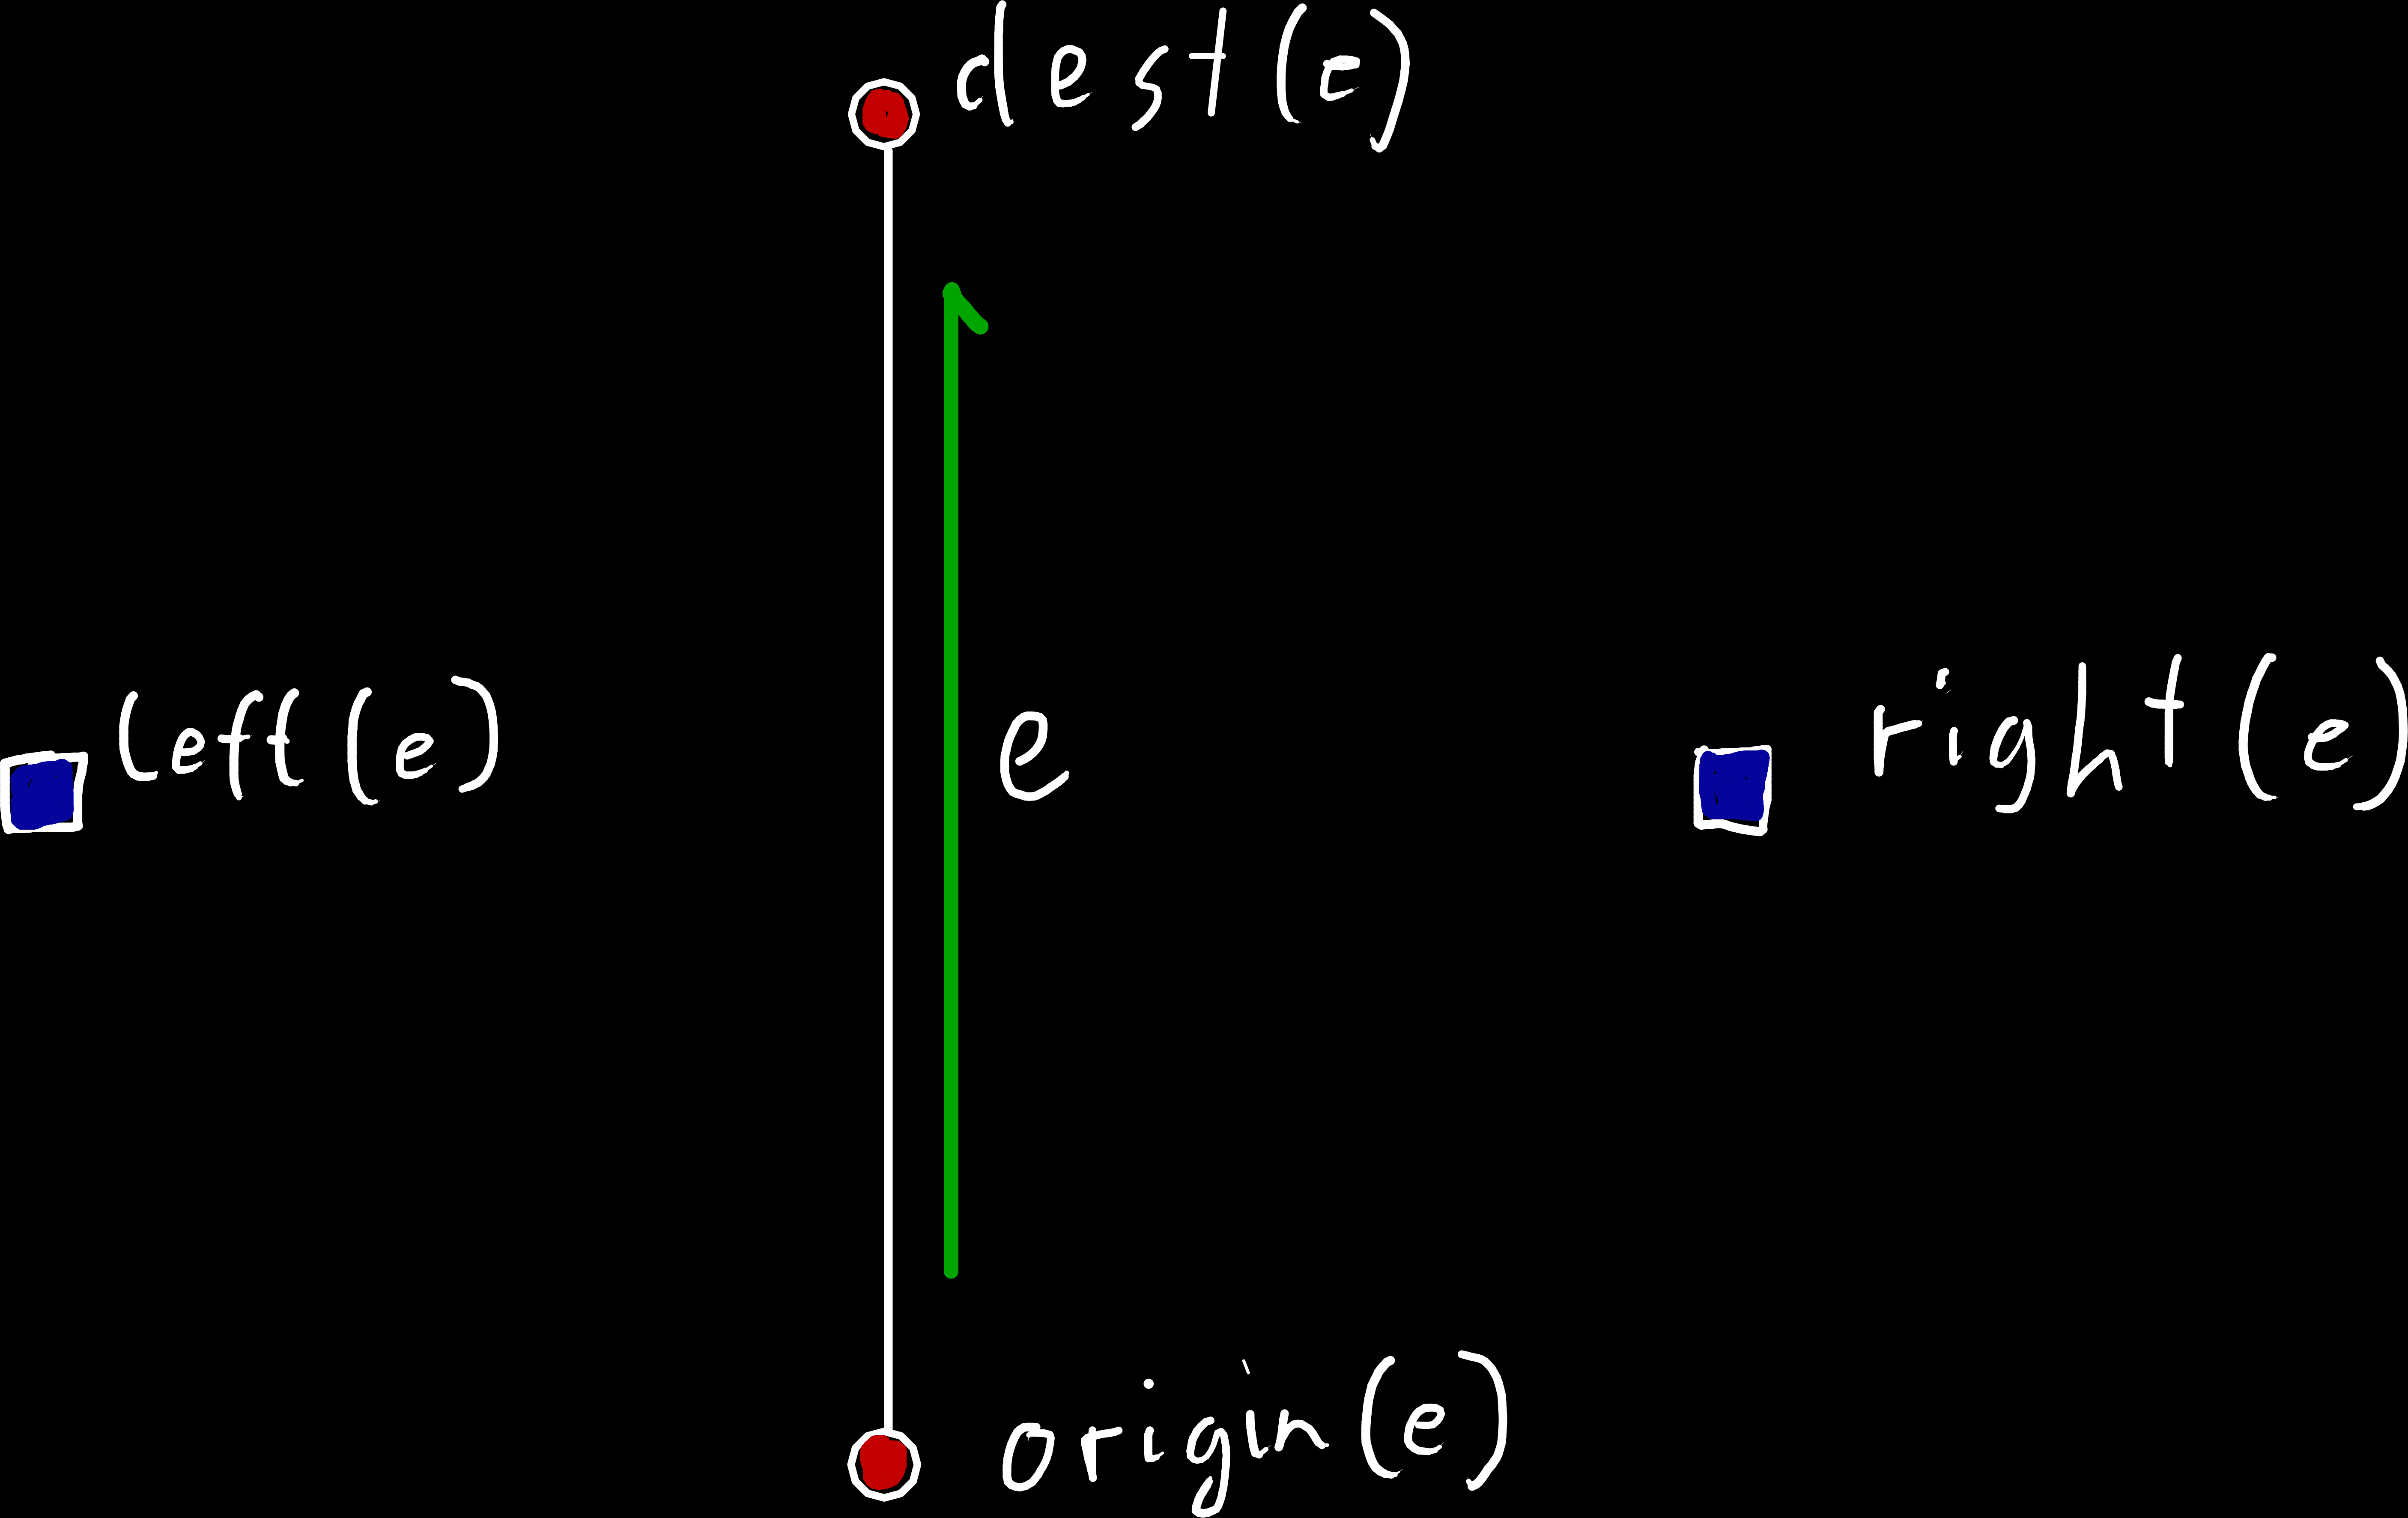 dest(e)
left(e)
e
right(e)
origin(e)